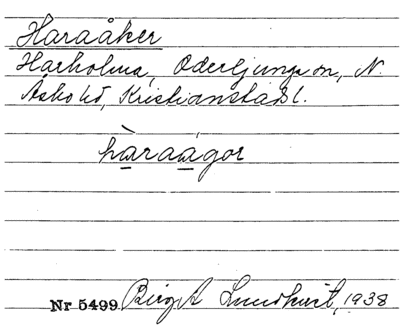 Haraåker
Harholma, Oderljunga sn, N.
Åsbo hd, Kristianstads l.
hàraágor
Nr 5499 Birgit Lundkvist, 1938